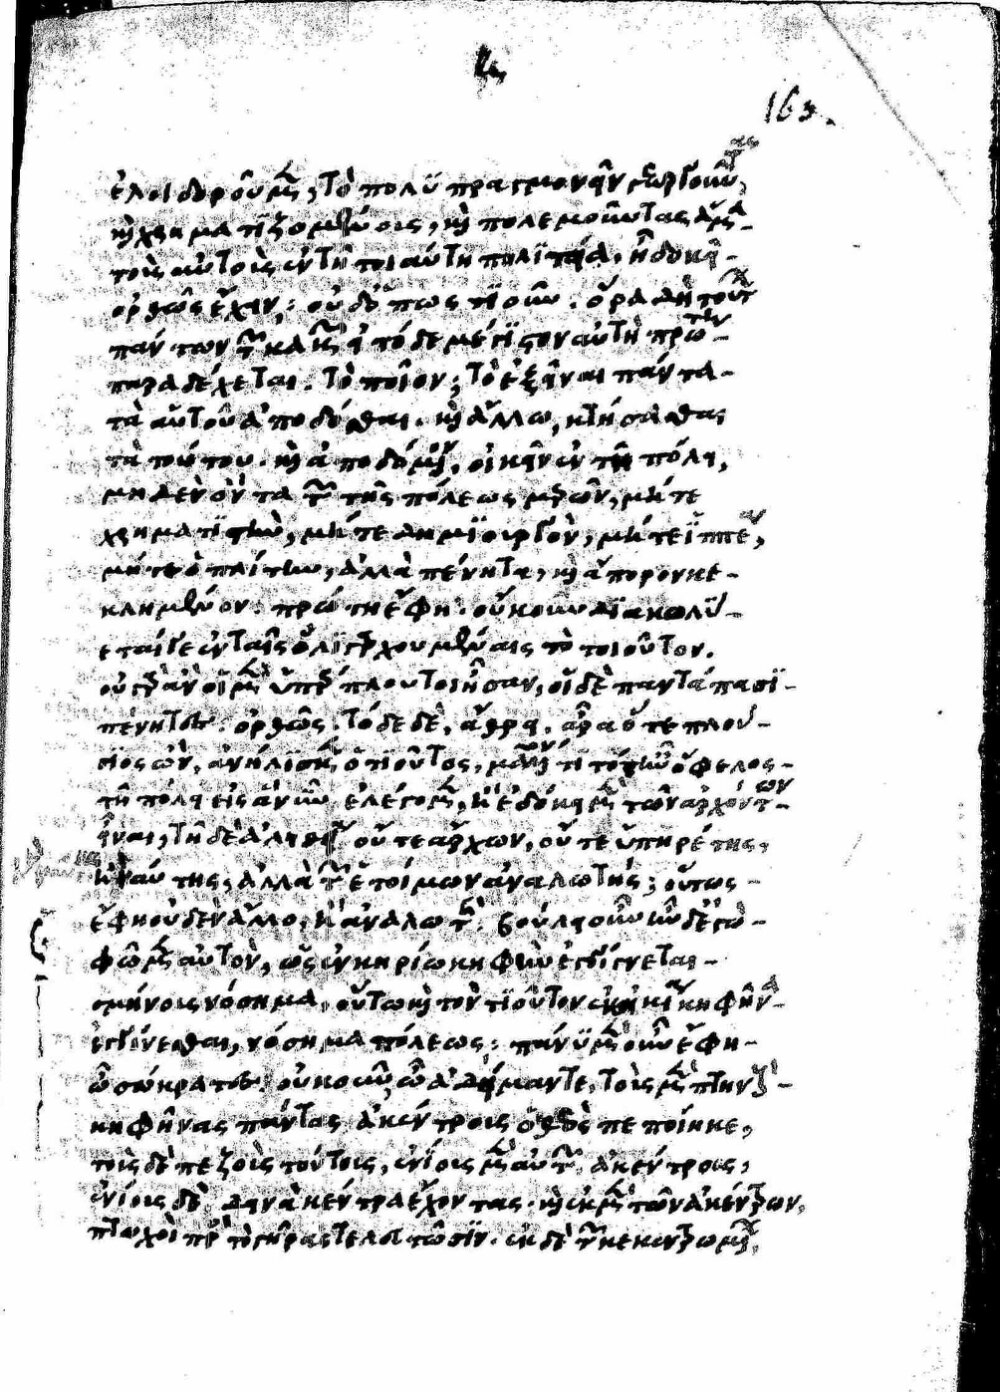 ἐλοιδοροῦμεν, τὸ πολυπραγμονεῖν γεωργοῦντας
καὶ χρηματιζομένοις, καὶ πολεμοῦντας ἅμα
τοὺς αὐτοὺς ἐν τῇ τοιαύτῃ πολιτείᾳ, ἢ δοκεῖ
ὀρθῶς ἔχειν; οὐδ' ὁπωστιοῦν. ὅρα δὴ τούτων
πάντων τῶν κακῶν εἰ τόδε μέγιστον αὐτὴ πρώτη
παραδέχεται. τὸ ποῖον; τὸ ἐξεῖναι πάντα
τὰ αὑτοῦ ἀποδόσθαι. καὶ ἄλλῳ, κτήσασθαι
τὰ τούτου. καὶ ἀποδόμενον, οἰκεῖν ἐν τῇ πόλει,
μηδὲν ὄντα τῶν τῆς πόλεως μερῶν, μήτε
χρηματιστὴν, μήτε δημιουργὸν, μήτε ἱππέα,
μήτε ὁπλίτην, ἀλλὰ πένητα, καὶ ἄπορον κε-
κλημένον. πρώτη ἔφη. οὐκοῦν διακωλύ-
εταί γε ἐν ταῖς ὀλιγαρχουμέναις τὸ τοιοῦτον.
οὐ γὰρ ἂν οἱ μὲν ὑπέρπλουτοι ἦσαν, οἱ δὲ παντάπασι
πένητες. ὀρθῶς. τόδε δὲ, ἄθρει. ἆρα ὅτε πλού-
σιος ὢν, ἀνήλισκεν ὁ τοιοῦτος, μᾶλλόν τι τότ' ἦν ὄφελος
τῇ πόλει εἰς ἃ νῦν ἐλέγομεν, ἢ ἐδόκει μὲν τῶν ἀρχόντων
εἶναι, τῇ δὲ ἀληθείᾳ οὔτε ἄρχων, οὔτε ὑπηρέτης,
ἦν αὐτῆς, ἀλλὰ τῶν ἑτοίμων ἀναλωτής; οὕτως
ἔφη οὐδὲν ἄλλο, ἢ ἀναλωτής. βούλει οὖν ἦν δ' ἐγὼ
φῶμεν αὐτὸν, ὡς ἐν κηρίῳ κηφὴν ἐγγίγνεται
σμήνοις νόσημα, οὕτω καὶ τὸν τοιοῦτον ἐν οἰκίᾳ κηφῆνα
ἐγγίνεσθαι, νόσημα πόλεως; πάνυ μὲν οὖν ἔφη
ὦ σώκρατες. οὐκοῦν ὦ ἀδείμαντε, τοὺς μὲν πτηνοὺς
κηφῆνας πάντας ἀκέντροις ὁ θεὸς πεποίηκε,
τοὺς δὲ πεζοὺς τούτοις, ἐνίοις μὲν αὐτῶν ἀκέντροις,
ἐνίοις δὲ δεινὰ κέντρα ἔχοντας. καὶ ἐκ μὲν τῶν ἀκέντρων,
πτωχοὶ πρὸς τὸ γῆρας τελευτῶσιν. ἐκ δὲ τῶν κεκεντρωμένων,